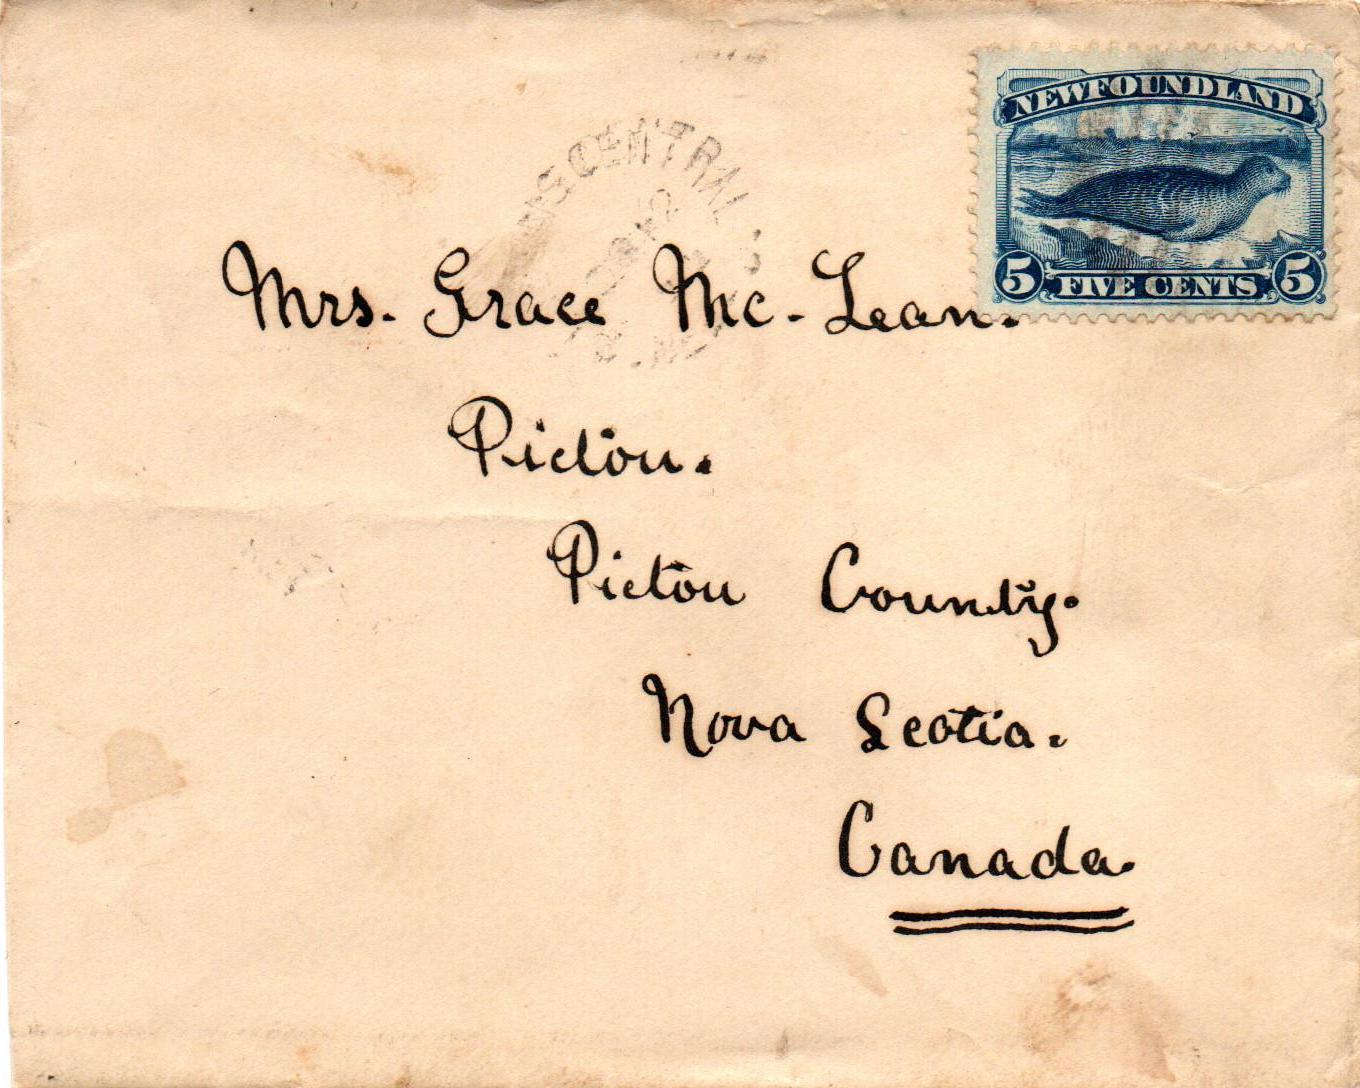 NEWFOUNDLAND
5 FIVE CENTS 5
CENTRAL
Mrs. Grace Mc-Lean.
Pictou.
Pictou County.
Nova Scotia.
Canada.